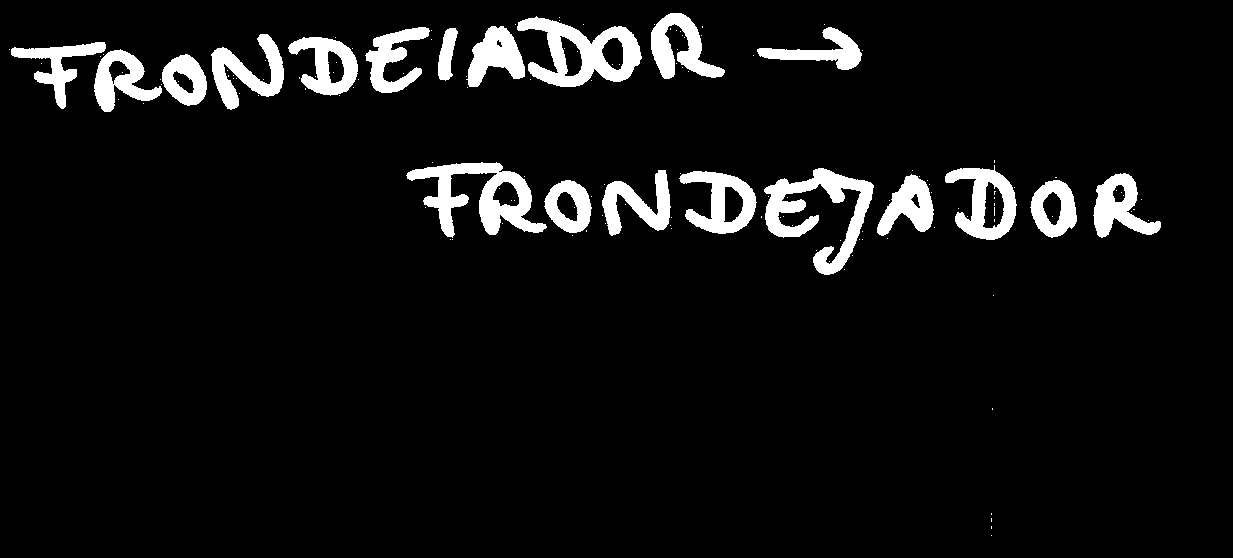 FRONDEIADOR →
FRONDEJADOR